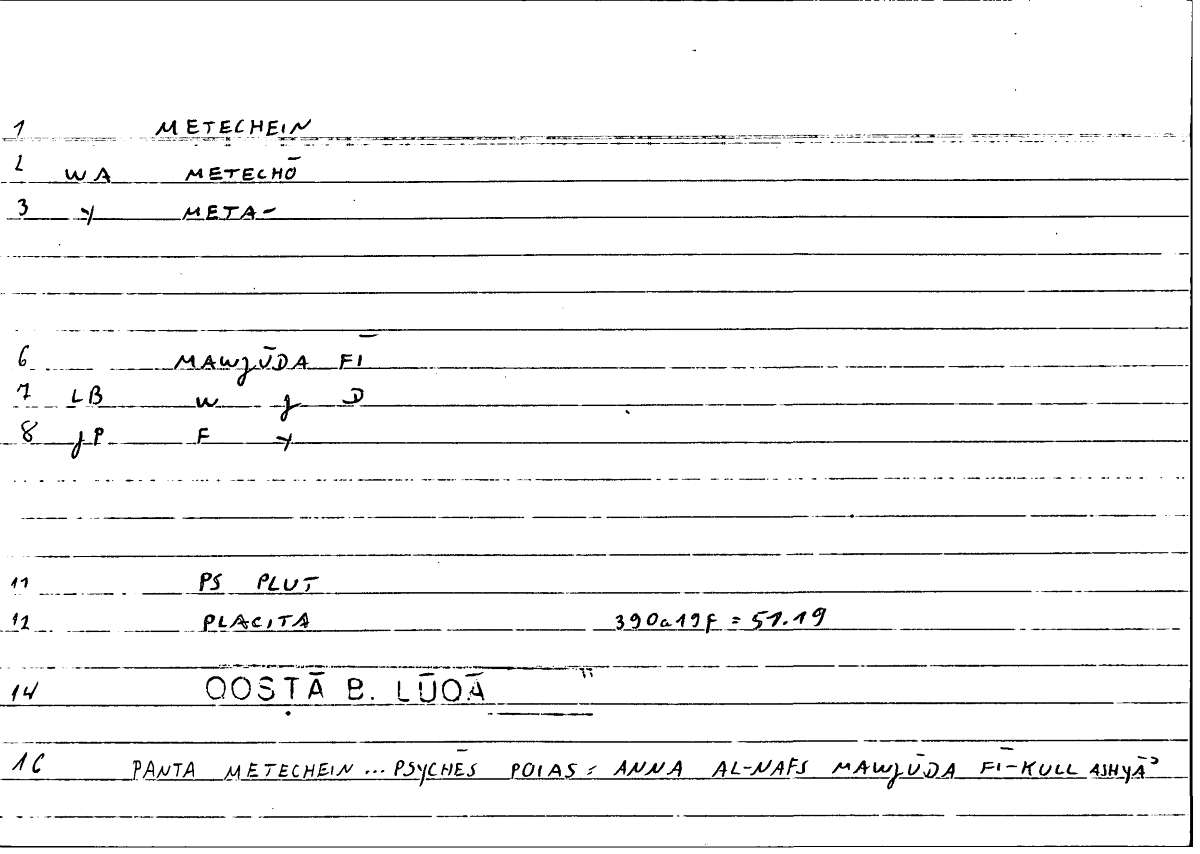 1 METECHEIN
2 WA METECHŌ
3 Y META-
6 MAWJŪDA FĪ
7 LB W J D
8 JP F Y
11 PS PLUT
12 PLACITA 390a19f = 51.19
14 QOSṬĀ B. LŪQĀ
16 PANTA METECHEIN ... PSYCHĒS POIAS = ANNA AL-NAFS MAWJŪDA FĪ-KULL ASHYĀʾ